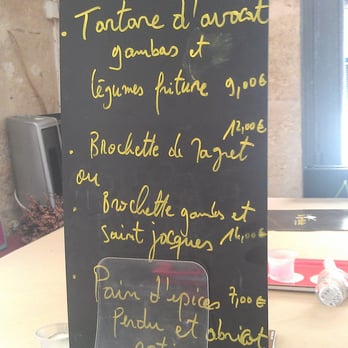 • Tartare d'avocat
gambas et
légumes friture 9,00€
12,00€
• Brochette de Magret
ou
• Brochette gambas et
Saint jacques 14,00€
• Pain d'épices 7,00€
Perdu et abricot